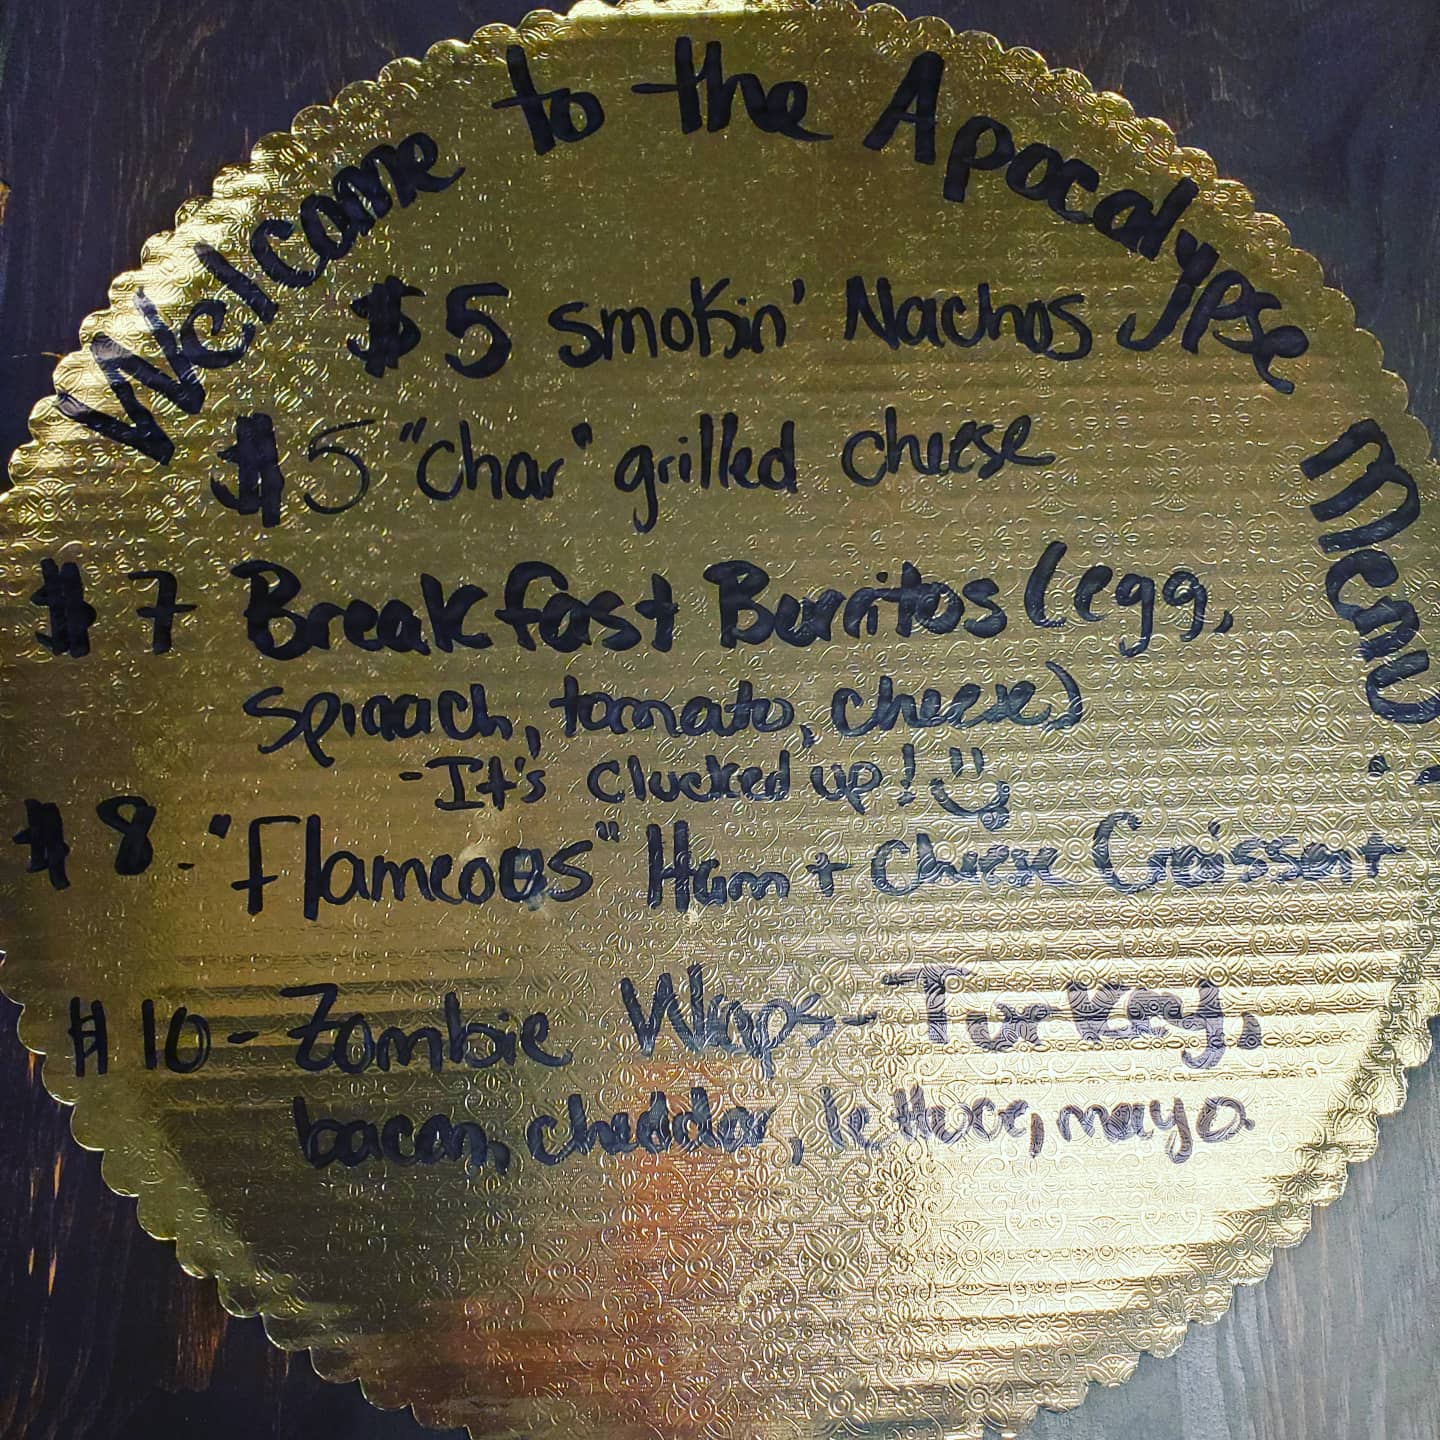 Welcome to the Apocalypse Menu:
$5 smokin' Nachos
$5 "char" grilled cheese
$7 Breakfast Burritos (egg,
spinach, tomato, cheese)
- It's clucked up! :)
$8 - "Flameoos" Ham + Cheese Croissant
$10 - Zombie Wraps - Turkey,
bacon, cheddar, lettuce, mayo.